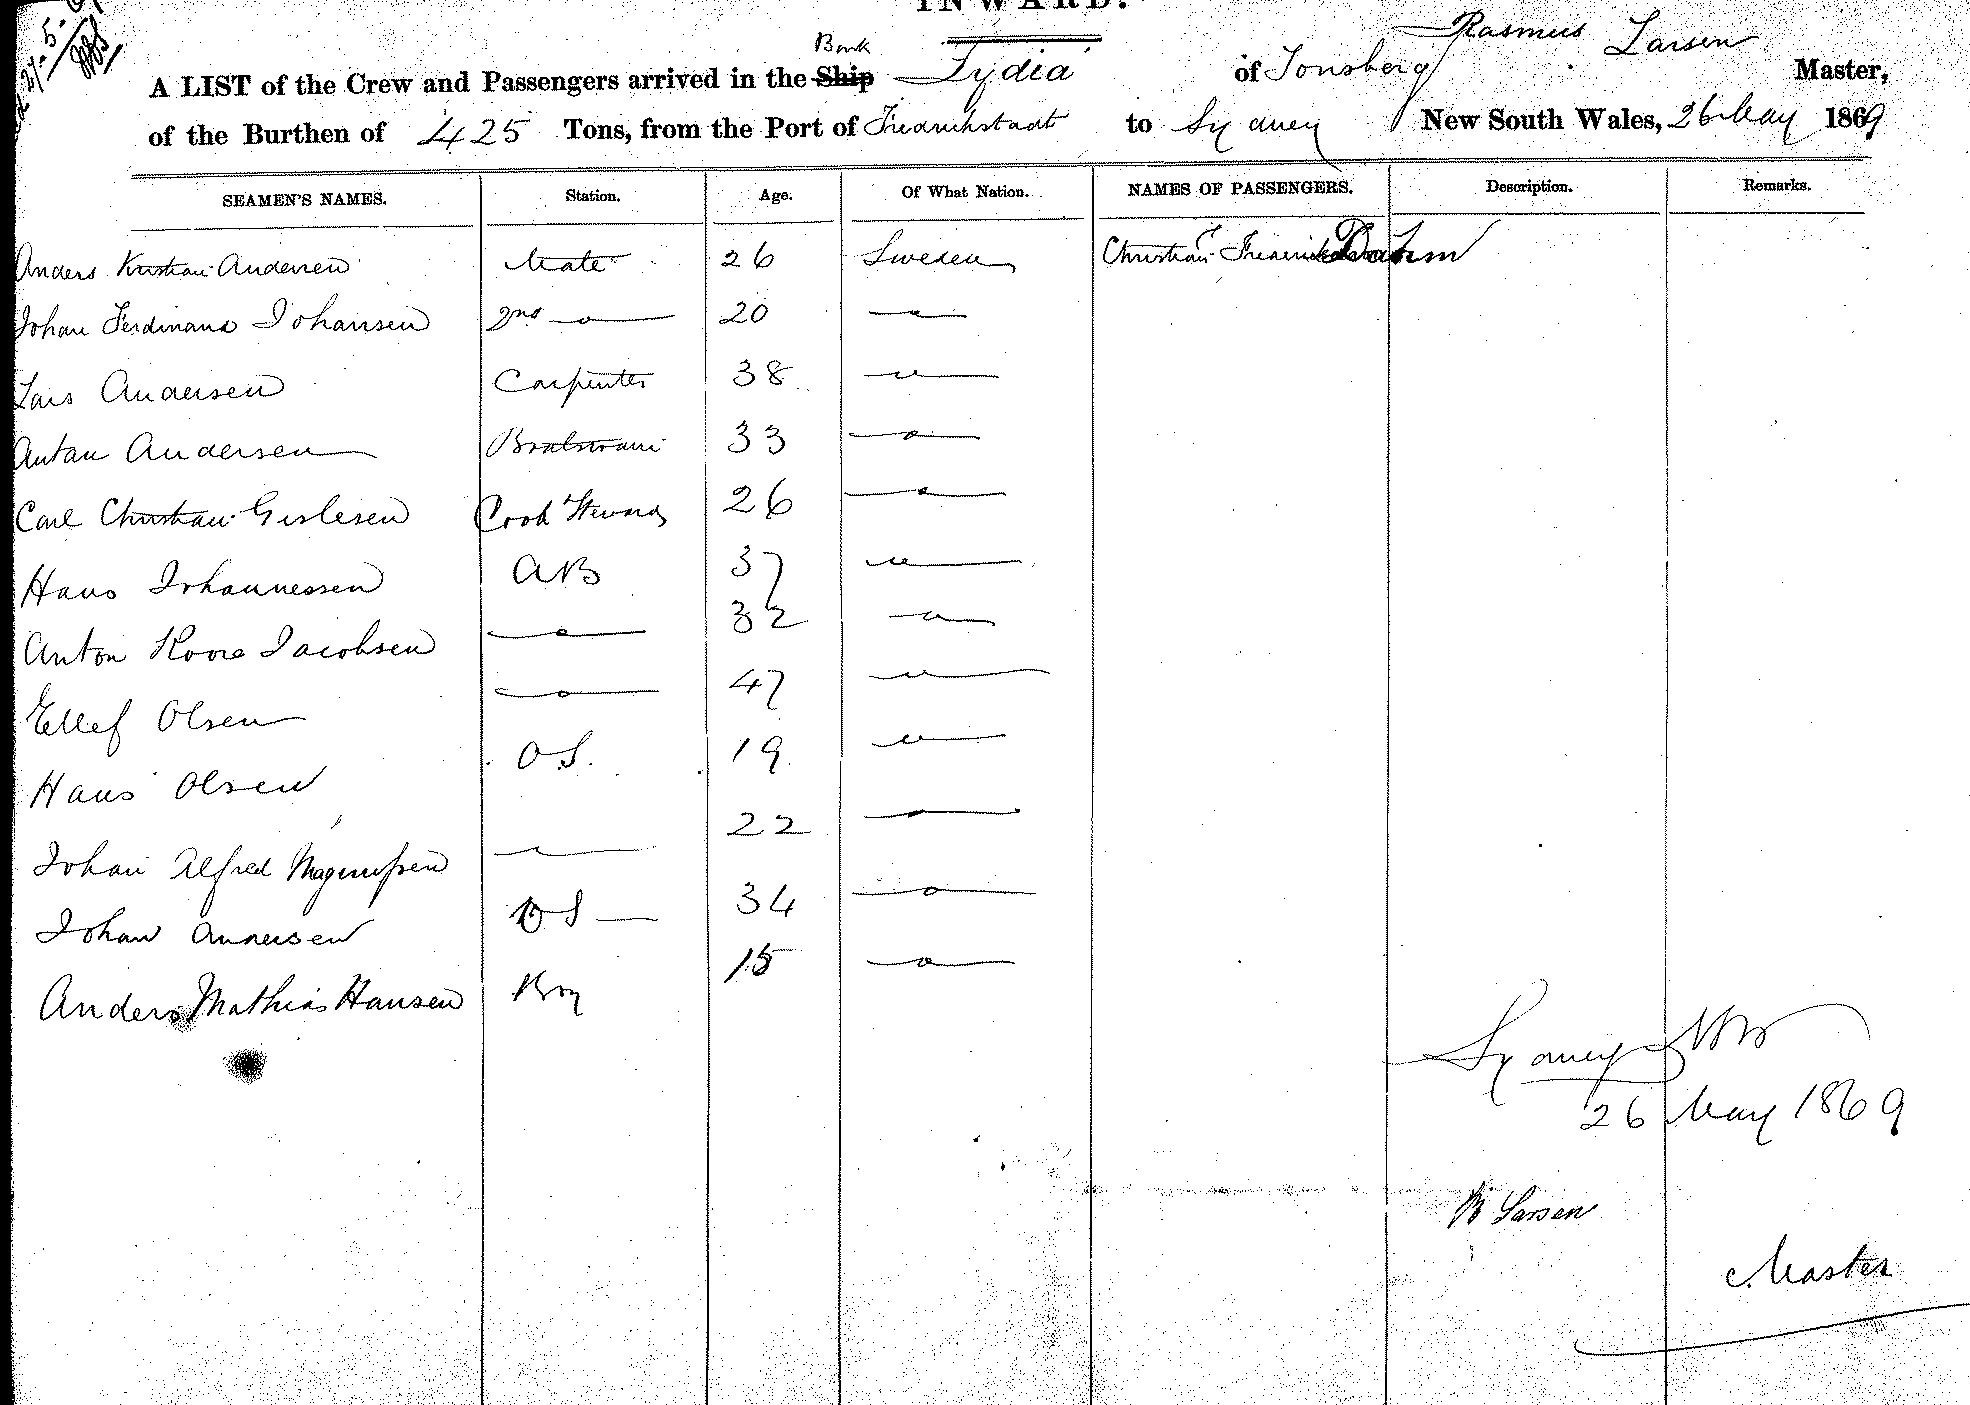 INWARD.
Rasmus Larsen
Bark
A LIST of the Crew and Passengers arrived in the Ship Lydia of Tonsberg Master,
of the Burthen of 425 Tons, from the Port of Fredrikstadt to Sydney New South Wales, 26 May 1869
SEAMEN'S NAMES. Station. Age. Of What Nation. NAMES OF PASSENGERS. Description. Remarks.
Anders Kristian Andersen Mate 26 Sweden Christian Frederick
Johan Ferdinand Johansen 2nd —o— 20 —o—
Lars Andersen Carpenter 38 —u—
Antan Andersen Boatswain 33 —o—
Carl Christian Gislesen Cook Steward 26 —o—
Hans Johannessen AB 37 —u—
Anton Jacobsen —o— 32 —o—
Ellef Olsen —o— 47 —u—
Hans Olsen OS. 19 —u—
Johan Alfred Magnussen — 22 —o—
Johan Andersen OS — 34 —o—
Anders Mathias Hansen Boy 15 —o—
Sydney
26 May 1869
R Larsen
Master